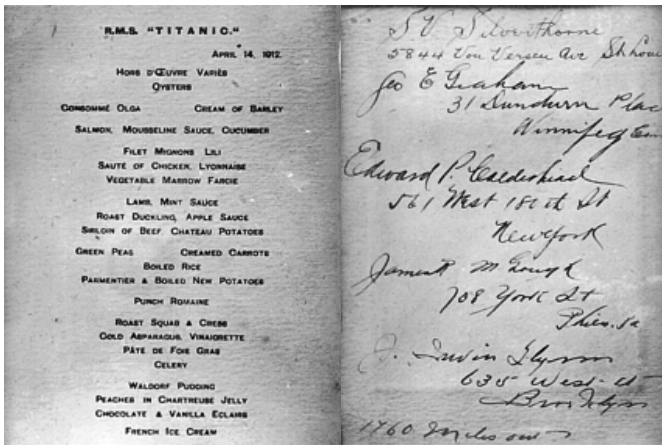 R.M.S. "TITANIC."
APRIL 14, 1912.
HORS D'ŒUVRE VARIÉS
OYSTERS
CONSOMMÉ OLGA CREAM OF BARLEY
SALMON, MOUSSELINE SAUCE, CUCUMBER
FILET MIGNONS LILI
SAUTÉ OF CHICKEN, LYONNAISE
VEGETABLE MARROW FARCIE
LAMB, MINT SAUCE
ROAST DUCKLING, APPLE SAUCE
SIRLOIN OF BEEF, CHATEAU POTATOES
GREEN PEAS CREAMED CARROTS
BOILED RICE
PARMENTIER & BOILED NEW POTATOES
PUNCH ROMAINE
ROAST SQUAB & CRESS
COLD ASPARAGUS, VINAIGRETTE
PÂTE DE FOIE GRAS
CELERY
WALDORF PUDDING
PEACHES IN CHARTREUSE JELLY
CHOCOLATE & VANILLA ECLAIRS
FRENCH ICE CREAM
S. V. Silverthorne
5844 Von Versen Ave
Geo E Graham
31 Dundurn Place
Winnipeg
Edward P. Calderhead
561 West 180th St
New York
James R McGough
708 York St
Phila. Pa
J. Irwin Flynn
635 West
Brooklyn
1760 Miles out